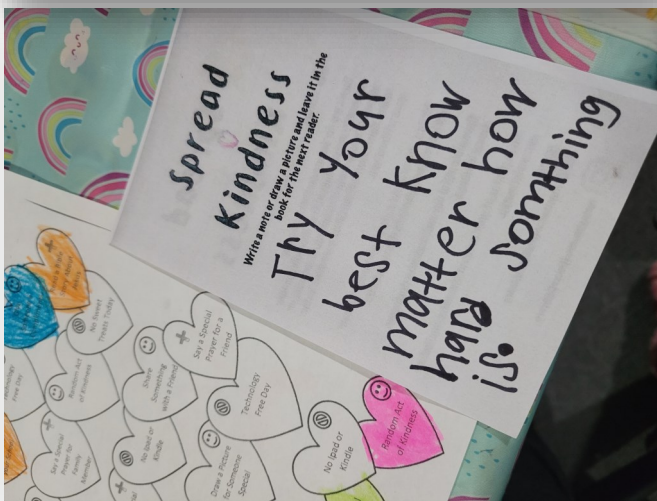 Spread
Kindness
Write a note or draw a picture and leave it in the
book for the next reader.
Try your
best know
matter how
hard somthing
is.
No Sweet
Treats Today
Say a Special
Prayer for a
Friend
Share
Something
with a Friend
Random Act
of Kindness
Technology
Free Day
Technology
Free Day
No Ipad or
Kindle
Say a Special
Prayer for
Family
Member
Draw a Picture
for Someone
Special
No Ipad or
Kindle
Random Act
of Kindness